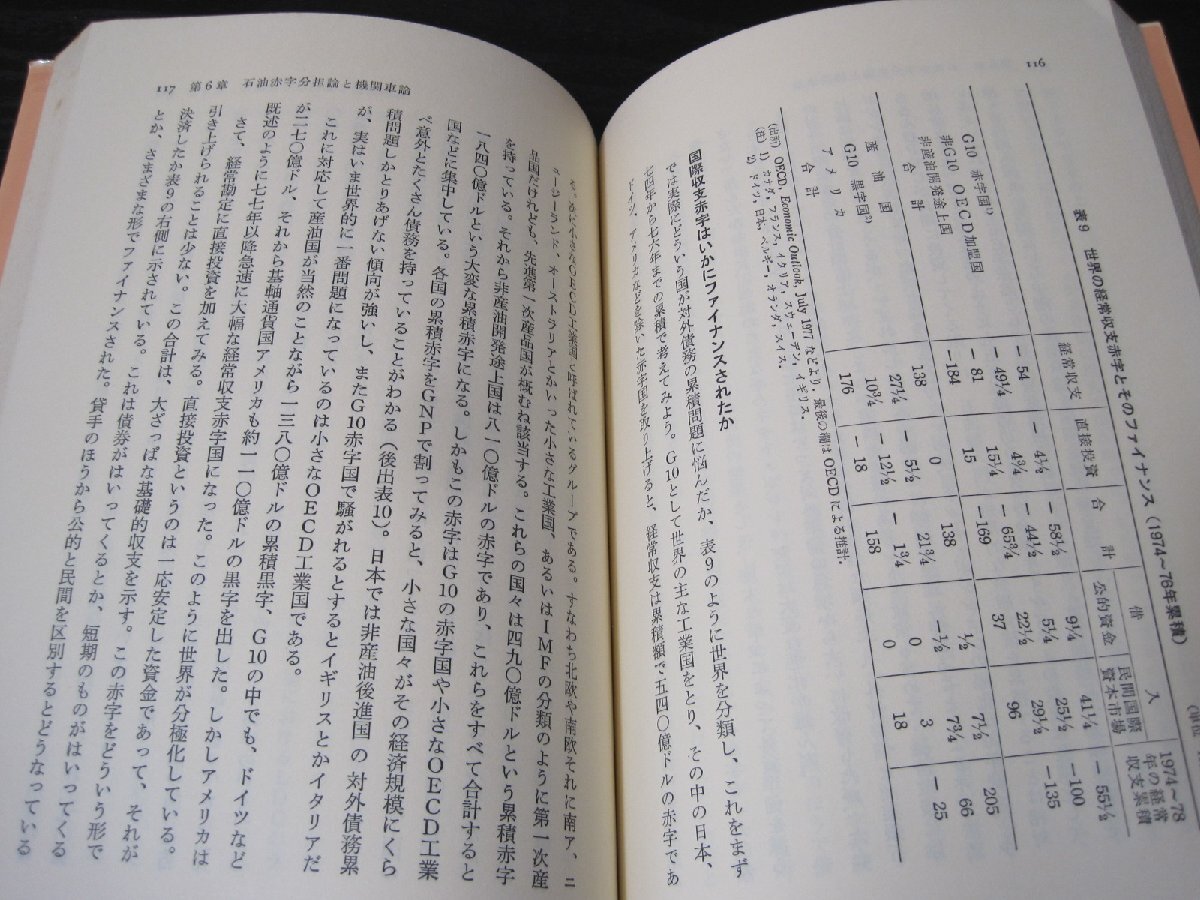 116
表9 世界の経常収支赤字とそのファイナンス(1974~78年累積)
(単位
経常収支 直接投資 合計 借入 公的資金 民間国際資本市場 1974~78年の経常収支累積
G10 赤字国1) -54 -4½ -58½ 9¼ 41¼ -55½
非G10 OECD加盟国 -49¼ 4¾ -44½ 5¼ 25½ -100
非産油開発途上国 -81 15¼ -65¾ 22½ 29½ -135
合計 -184 15 -169 37 96
産油国 138 0 138 ½ 7½ 205
G10 黒字国2) 27¼ -5½ 21¾ -½ 7¾ 66
アメリカ 10¾ -12½ -1¾ 0 3 -25
合計 176 -18 158 0 18
(出所) OECD, Economic Outlook, July 1977 などより,最後の欄は OECD による推計.
(注) 1) カナダ,フランス,イタリア,スウェーデン,イギリス.
2) ドイツ,日本,ベルギー,オランダ,スイス.
国際収支赤字はいかにファイナンスされたか
では実際にどういう国が対外債務の累積問題に悩んだか、表9のように世界を分類し、これをまず
七四年から七六年までの累積で考えてみよう。G10として世界の主な工業国をとり、その中の日本、
ドイツ、アメリカなどを除いた赤字国を取り上げると、経常収支は累積額で五四〇億ドルの赤字であ
117 第6章 石油赤字分担論と機関車論
小さなOECD工業国と呼ばれているグループである。すなわち北欧や南欧それに南ア、ニ
ュージーランド、オーストラリアとかいった小さな工業国、あるいはIMFの分類のように第一次産
品国だけれども、先進第一次産品国が概むね該当する。これらの国々は四九〇億ドルという累積赤字
を持っている。それから非産油開発途上国は八一〇億ドルの赤字であり、これらをすべて合計すると
一八四〇億ドルという大変な累積赤字になる。しかもこの赤字はG10の赤字国や小さなOECD工業
国などに集中している。各国の累積赤字をGNPで割ってみると、小さな国々がその経済規模にくら
べ意外とたくさん債務を持っていることがわかる(後出表10)。日本では非産油後進国の対外債務累
積問題しかとりあげない傾向が強いし、またG10赤字国で騒がれるとするとイギリスとかイタリアだ
が、実はいま世界的に一番問題になっているのは小さなOECD工業国である。
これに対応して産油国が当然のことながら一三八〇億ドルの累積黒字、G10の中でも、ドイツなど
が二七〇億ドル、それから基軸通貨国アメリカも約一一〇億ドルの黒字を出した。しかしアメリカは
既述のように七七年以降急速に大幅な経常収支赤字国になった。このように世界が分極化している。
さて、経常勘定に直接投資を加えてみる。直接投資というのは一応安定した資金であって、それが
引き上げられることは少ない。この合計は、大ざっぱな基礎的収支を示す。この赤字をどういう形で
決済したか表9の右側に示されている。これは債券がはいってくるとか、短期のものがはいってくる
とか、さまざまな形でファイナンスされた。貸手のほうから公的と民間を区別するとどうなっている